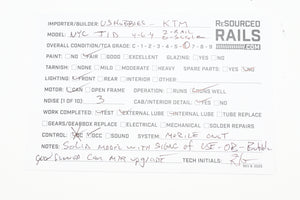 IMPORTER/BUILDER US HOBBIES - KTM
RESOURCED RAILS .COM
MODEL: NYC J1D 4-6-4 2-RAIL O-SCALE
OVERALL CONDITION/TCA GRADE C-1 2 3 4 5 6 7 8 9
PAINT: NO FAIR GOOD EXCELLENT GLAZING: YES NO
TARNISH: NONE MILD MODERATE HEAVY SPARE PARTS: YES NO
LIGHTING: FRONT REAR INTERIOR OTHER
MOTOR: CAN OPEN FRAME OPERATION: RUNS RUNS WELL
NOISE (1 OF 10) 3 CAB/INTERIOR DETAIL: YES NO
WORK COMPLETED: TEST EXTERNAL LUBE INTERNAL LUBE TUBE REPLACE
GEARS/GEARBOX REPLACE ELECTRICAL MECHANICAL SOLDER REPAIRS
CONTROL: DC DCC SOUND SYSTEM
NOTES: SOLID MODEL WITH SIGNS OF USE
CAN MTR UPGRADE TECH INITIALS: